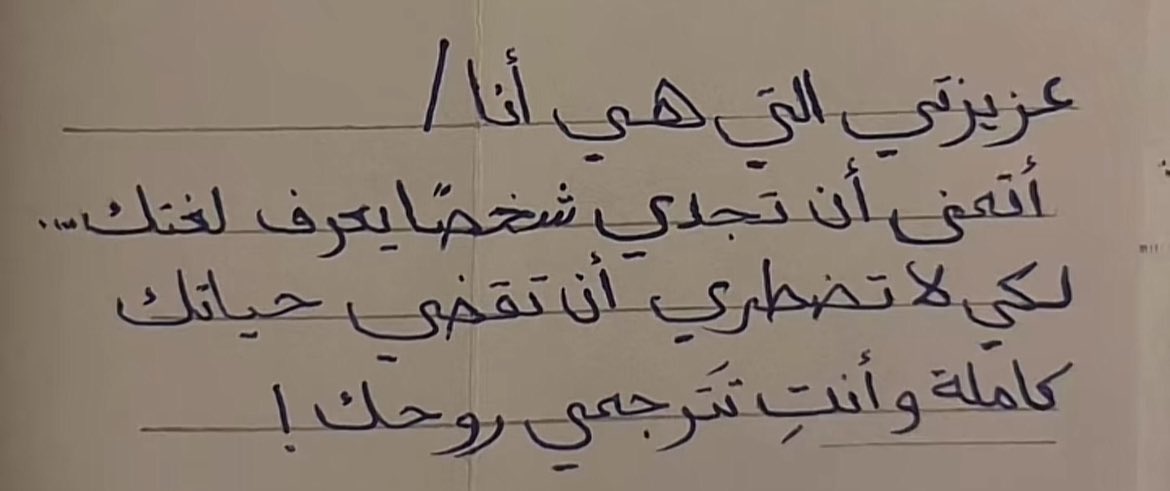 عزيزتي التي هي أنا/
أتمنى أن تجدي شخصًا يعرف لغتك...
لكي لا تضطري أن تقضي حياتك
كاملة وأنتِ تَترجمي روحك!